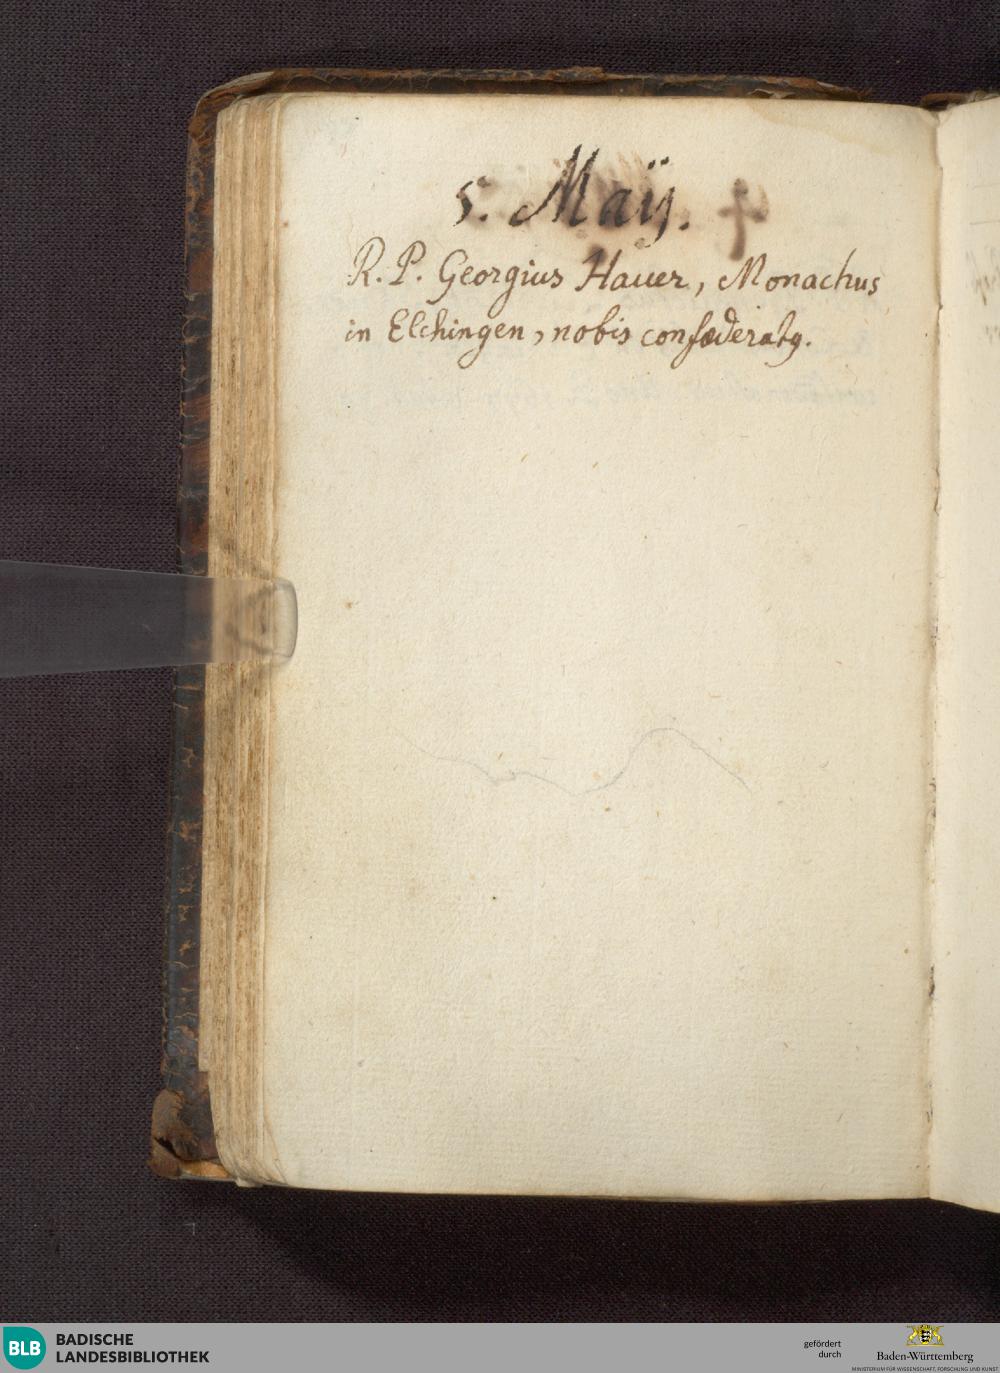 5. Maÿ.
R. P. Georgius Hauer, Monachus
in Elchingen, nobis confœderatꝯ.
BLB
BADISCHE
LANDESBIBLIOTHEK
gefördert
durch
Baden-Württemberg
MINISTERIUM FÜR WISSENSCHAFT, FORSCHUNG UND KUNST